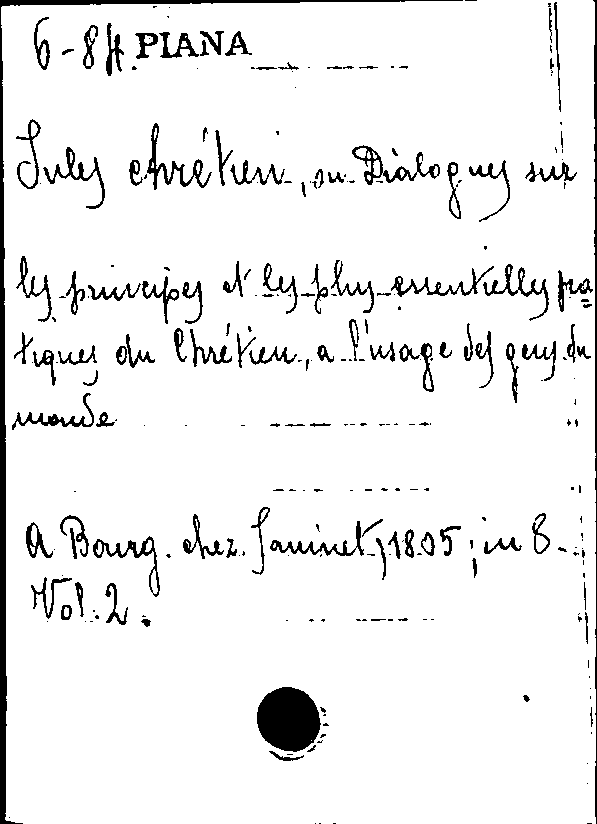 6-84. PIANA
Jules chrétien, ou Dialogues sur
les principes et les plus essentielles pra=
tiques du Chrétien, a l'usage des gens du
monde
A Bourg. chez. Janinet, 1805; in 8-
Vol. 2.